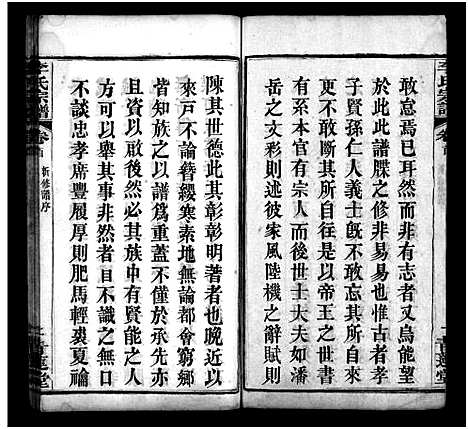 敢怠焉已耳然而非有志者又烏能望
於此此譜牒之修非易易也惟古者孝
子賢孫仁人義士旣不敢以帝王之世書
岳之本官有宗人而後世士大夫如潘
岳之有述彼家風陸機之辭賦則
陳其世德此其彰彰明著者也晚近以
來戶不論簪纓寒素地無論都會窮鄉
皆知族之以譜爲重蓋不僅於承先志
且資以啟後然必其族中有賢能之人
方可以舉其事非然者目不識之無口
不談忠孝席豐履厚則肥馬輕裘夏論
李氏宗譜
卷首
新修譜序